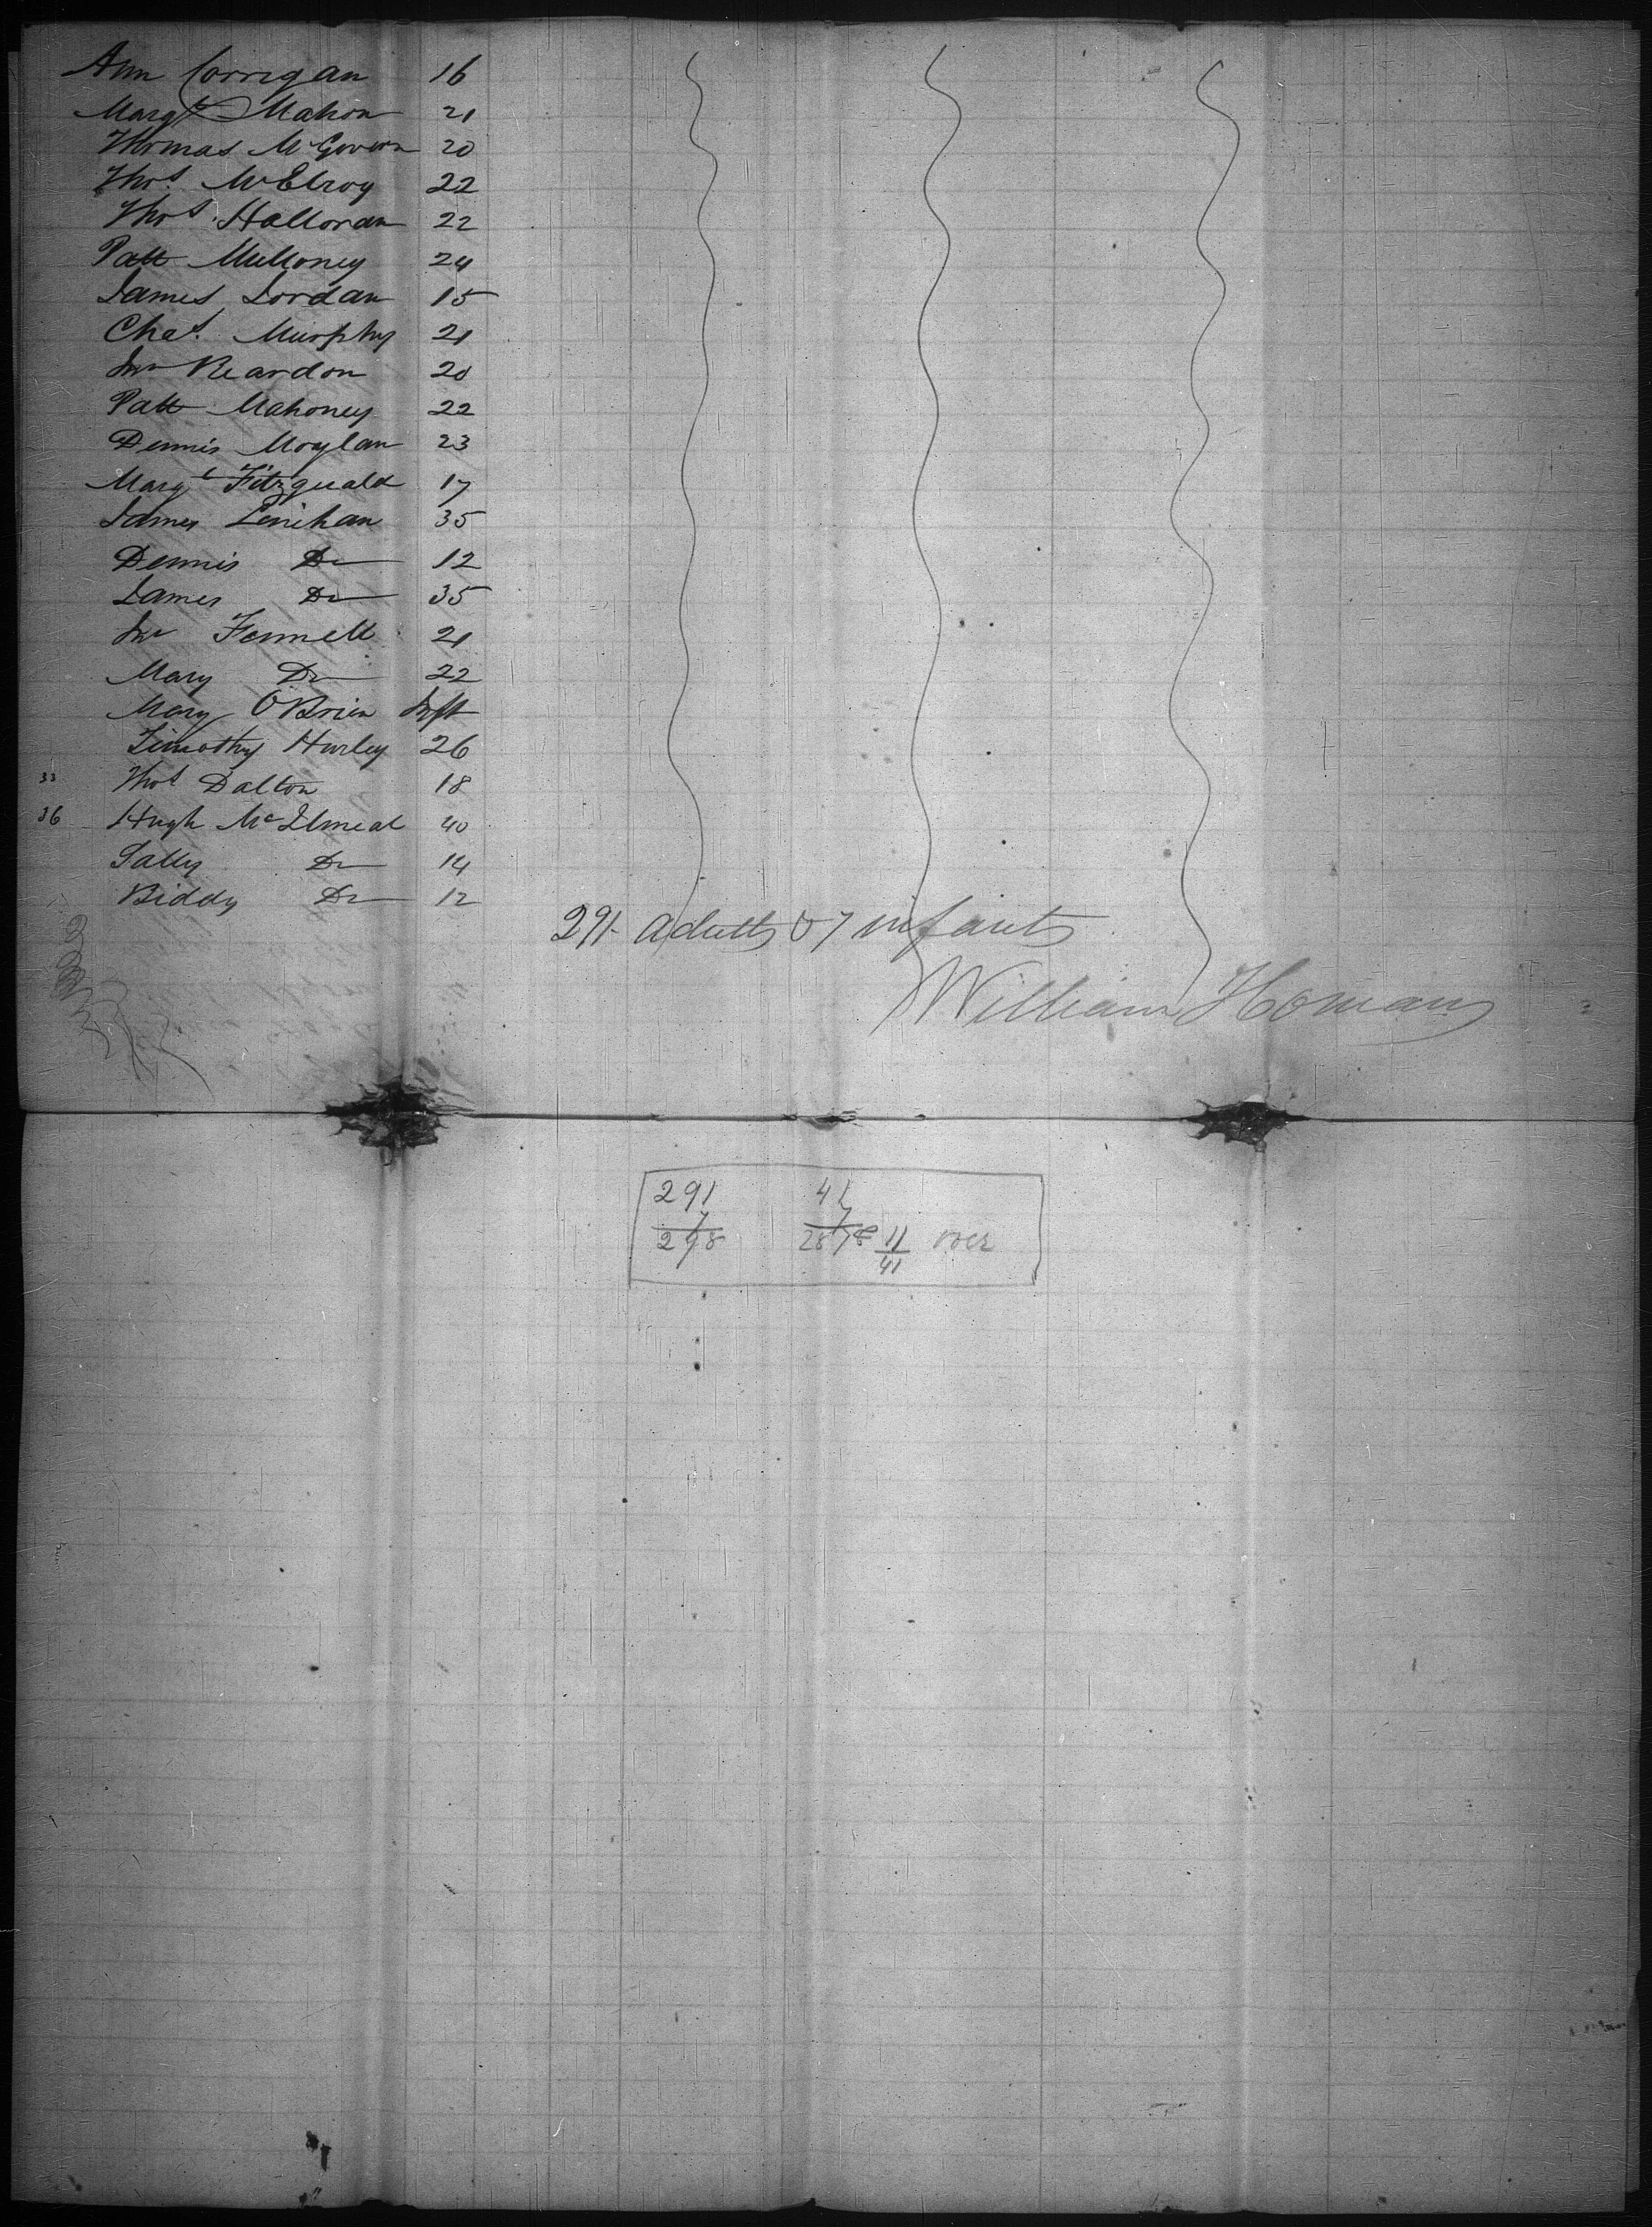 Ann Corrigan 16
Margt Mahon 21
Thomas McGovern 20
Thos McElroy 22
Thos Halloran 22
Patt Mulloney 24
James Jordan 15
Chas. Murphy 21
Jno Reardon 20
Patt Mahoney 22
Dennis Moylan 23
Margt Fitzguald 17
James Lenihan 35
Dennis Do 12
James Do 35
Jno Fennell 21
Mary Do 22
Mary O'Brien Inft
Timothy Hurley 26
33 Thos Dalton 18
36 Hugh McIlmeal 40
Sally Do 14
Biddy Do 12
291 adults & 7 infants
William Homan
291 41
7 7
298 287 & 11 over
41